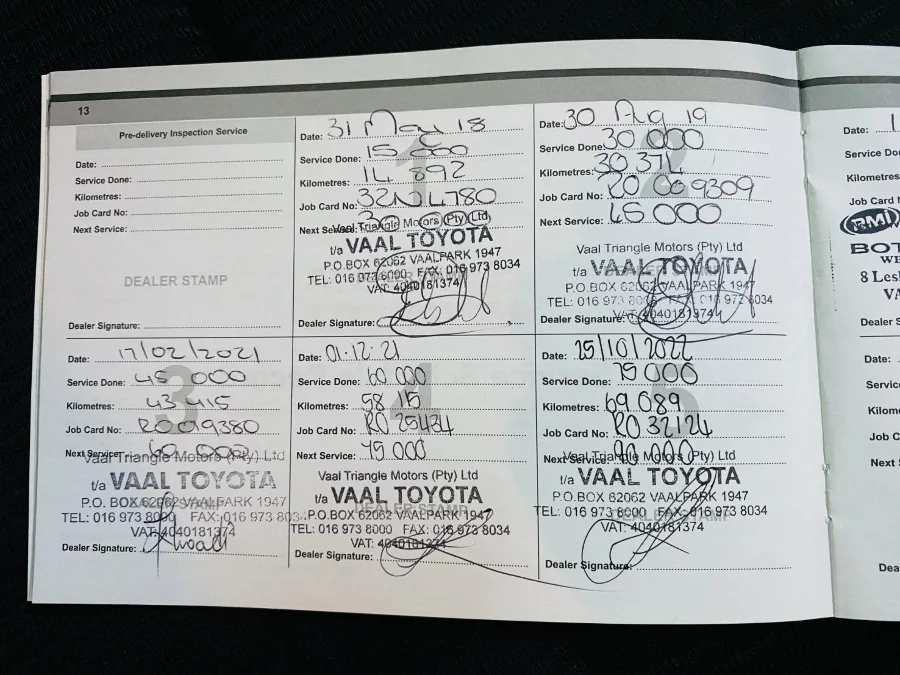 13
Pre-delivery Inspection Service
Date:
Service Done:
Kilometres:
Job Card No:
Next Service:
DEALER STAMP
Dealer Signature:
1
Date: 31 May 18
Service Done: 15 000
Kilometres: 14 892
Job Card No: 32N4780
Next Service: 30 000
Vaal Triangle Motors (Pty) Ltd
t/a VAAL TOYOTA
P.O.BOX 62062 VAALPARK 1947
TEL: 016 973 8000 FAX: 016 973 8034
VAT: 4040181374
DEALER STAMP
Dealer Signature:
2
Date: 30 Aug 19
Service Done: 30 000
Kilometres: 30 371
Job Card No: RO 009309
Next Service: 45 000
Vaal Triangle Motors (Pty) Ltd
t/a VAAL TOYOTA
P.O.BOX 62062 VAALPARK 1947
TEL: 016 973 8000 FAX: 016 973 8034
VAT: 4040181374
Dealer Signature:
3
Date: 17/02/2021
Service Done: 45 000
Kilometres: 43 415
Job Card No: RO019380
Next Service: 60 000
Vaal Triangle Motors (Pty) Ltd
t/a VAAL TOYOTA
P.O.BOX 62062 VAALPARK 1947
TEL: 016 973 8000 FAX: 016 973 803
VAT: 4040181374
Dealer Signature:
4
Date: 01.12.21
Service Done: 60 000
Kilometres: 58 15
Job Card No: RO 25434
Next Service: 75 000
Vaal Triangle Motors (Pty) Ltd
t/a VAAL TOYOTA
P.O.BOX 62062 VAALPARK 1947
TEL: 016 973 8000 FAX: 016 973 8034
VAT: 4040181374
DEALER STAMP
Dealer Signature:
5
Date: 25/10/2022
Service Done: 75 000
Kilometres: 69 089
Job Card No: RO 32124
Next Service: 90 000
Vaal Triangle Motors (Pty) Ltd
t/a VAAL TOYOTA
P.O.BOX 62062 VAALPARK 1947
TEL: 016 973 8000 FAX: 016 973 8034
VAT: 4040181374
DEALER STAMP
Dealer Signature:
Date: 1
Service Do
Kilometres
Job Card N
RMI
BOT
WE
8 Lesl
VA
Dealer S
Date:
Servic
Kilom
Job C
Next
Dea